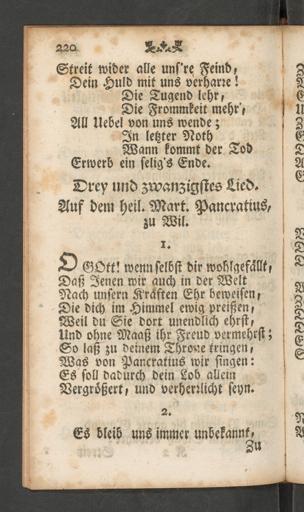 220
Streit wider alle uns're Feind,
Dein Huld mit uns verharre!
Die Tugend lehr,
Die Frommkeit mehr',
All Uebel von uns wende;
In letzter Noth
Wann kommt der Tod
Erwerb ein selig's Ende.
Drey und zwanzigstes Lied.
Auf dem heil. Mart. Pancratius,
zu Wil.
1.
O GOtt! wenn selbst dir wohlgefällt,
Daß Jenen wir auch in der Welt
Nach unsern Kräften Ehr beweisen,
Die dich im Himmel ewig preißen,
Weil du Sie dort unendlich ehrst,
Und ohne Maaß ihr Freud vermehrst;
So laß zu deinem Throne dringen,
Was von Pancratius wir singen:
Es soll dadurch dein Lob allein
Vergrößert, und verherrlicht seyn.
2.
Es bleib uns immer unbekannt,
Zu